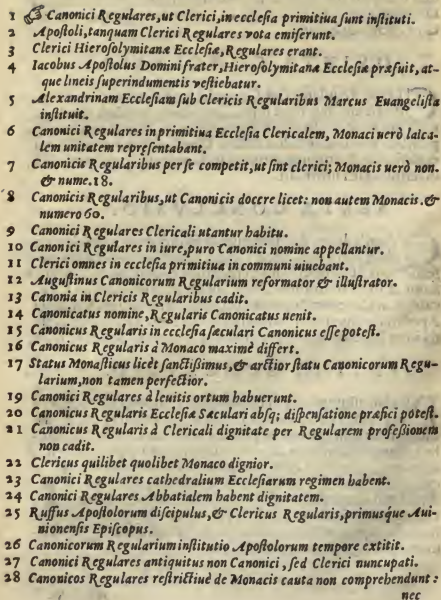 1 ☞ Canonici Regulares, ut Clerici, in ecclesia primitiua sunt instituti.
2 Apostoli, tanquam Clerici Regulares vota emiserunt.
3 Clerici Hierosolymitanæ Ecclesiæ, Regulares erant.
4 Iacobus Apostolus Domini frater, Hierosolymitanæ Ecclesiæ præfuit, at-
que lineis superindumentis vestiebatur.
5 Alexandrinam Ecclesiam sub Clericis Regularibus Marcus Euangelista
instituit.
6 Canonici Regulares in primitiua Ecclesia Clericalem, Monaci uerò laica-
lem unitatem repręsentabant.
7 Canonicis Regularibus per se competit, ut sint clerici; Monacis uerò non.
& nume. 18.
8 Canonicis Regularibus, ut Canonicis docere licet: non autem Monacis. &
numero 60.
9 Canonici Regulares Clericali utantur habitu.
10 Canonici Regulares in iure, puro Canonici nomine appellantur.
11 Clerici omnes in ecclesia primitiua in communi uiuebant.
12 Augustinus Canonicorum Regularium reformator & illustrator.
13 Canonia in Clericis Regularibus cadit.
14 Canonicatus nomine, Regularis Canonicatus uenit.
15 Canonicus Regularis in ecclesia sæculari Canonicus esse potest.
16 Canonicus Regularis à Monaco maximè differt.
17 Status Monasticus licèt sanctissimus, & arctior statu Canonicorum Regu-
larium, non tamen perfectior.
19 Canonici Regulares à leuitis ortum habuerunt.
20 Canonicus Regularis Ecclesiæ Sæculari absq; dispensatione præfici potest.
21 Canonicus Regularis à Clericali dignitate per Regularem professionem
non cadit.
22 Clericus quilibet quolibet Monaco dignior.
23 Canonici Regulares cathedralium Ecclesiarum regimen habent.
24 Canonici Regulares Abbatialem habent dignitatem.
25 Ruffus Apostolorum discipulus, & Clericus Regularis, primusque Aui-
nionensis Episcopus.
26 Canonicorum Regularium institutio Apostolorum tempore extitit.
27 Canonici Regulares antiquitus non Canonici, sed Clerici nuncupati.
28 Canonicos Regulares restrictiuè de Monacis cauta non comprehendunt:
nec